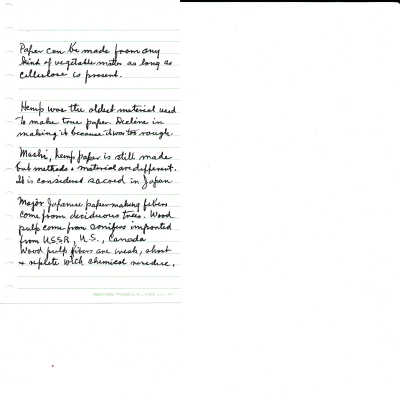 Paper can be made from any
kind of vegetable matter as long as
cellulose is present.
Hemp was the oldest material used
to make true paper. Decline in
making it because it was too rough.
hemp paper is still made
but methods & material are different.
It is considered sacred in Japan
Major Japanese papermaking fibers
come from deciduous trees. Wood
pulp come from conifers imported
from USSR, U.S., Canada
Wood pulp fibers are weak, short
& replete with chemical residue.